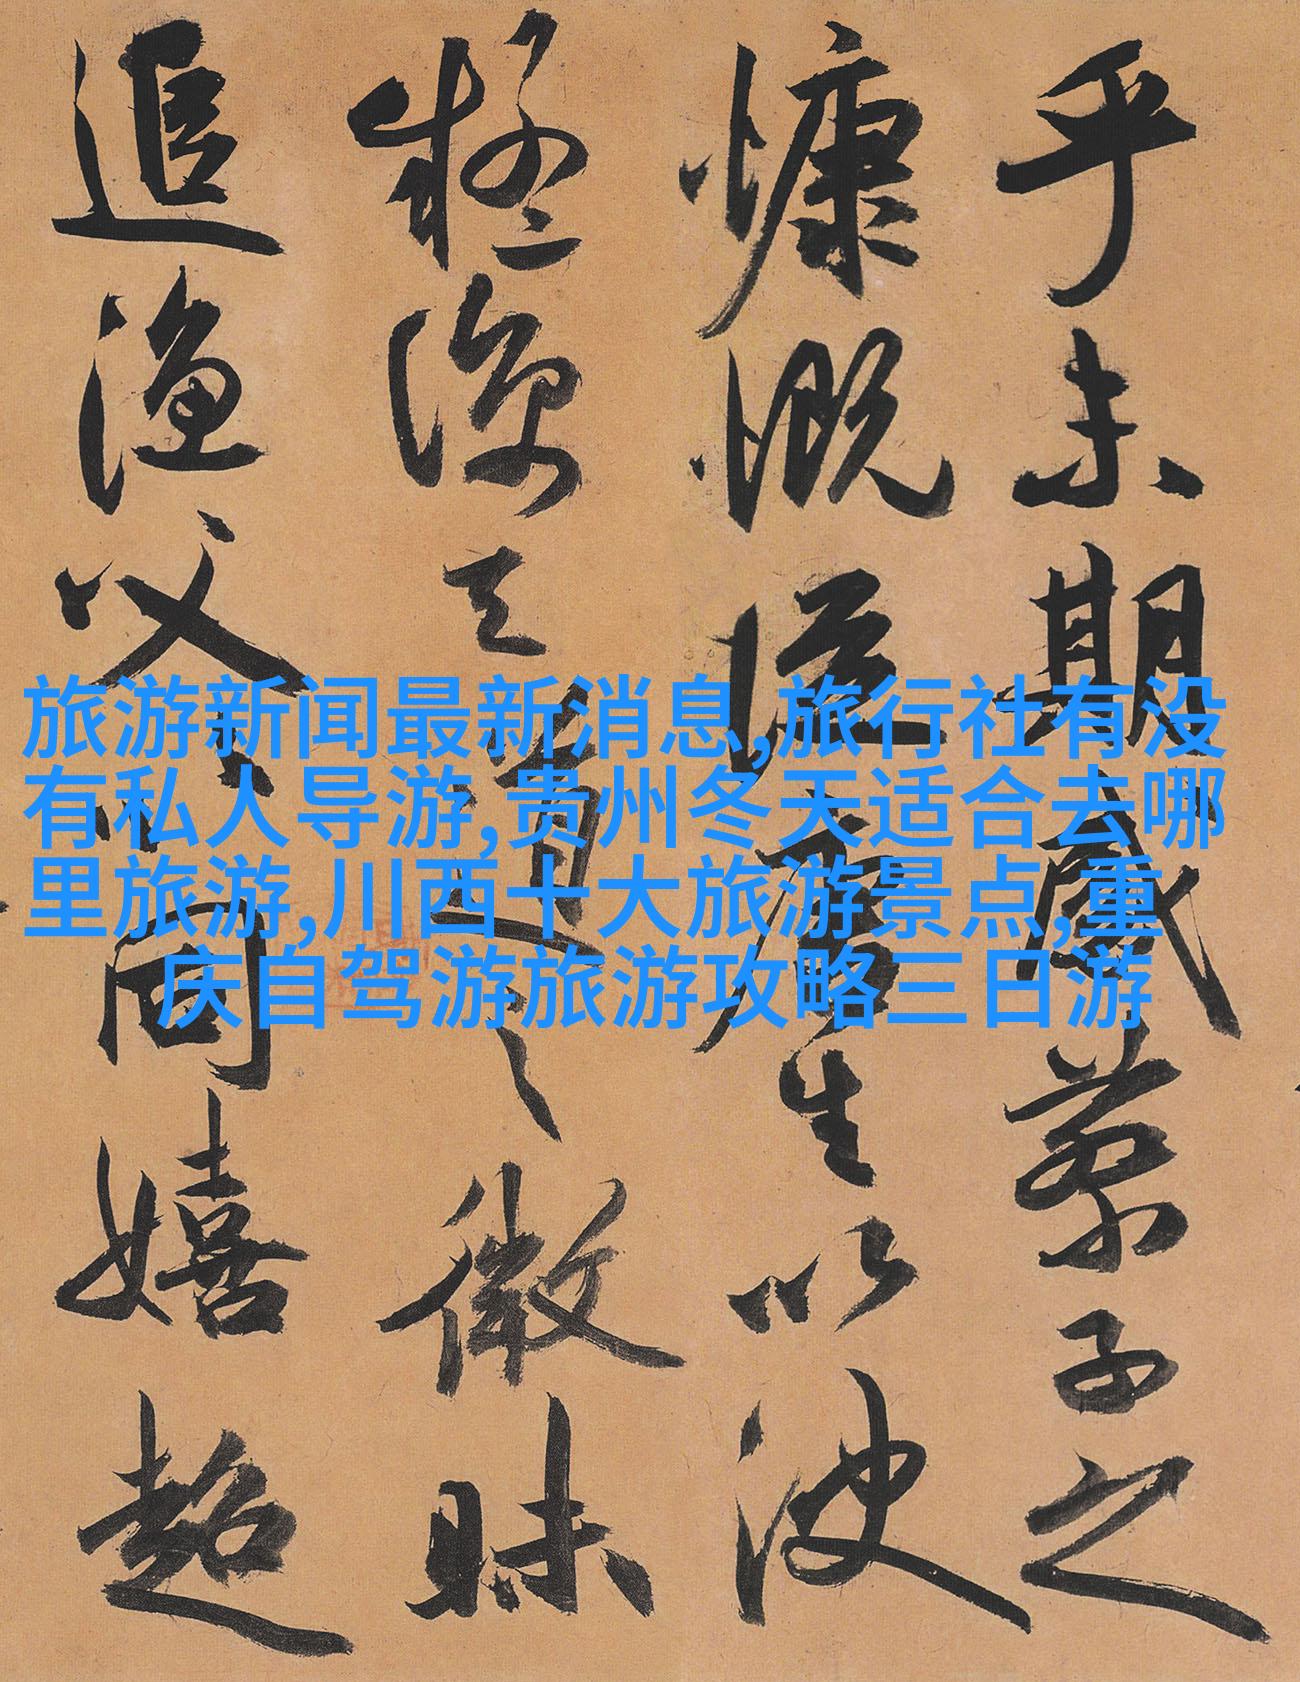 乎未期感蔡子之
慷慨從唐生以決
疑諒天道之微昧
追漁父以同嬉超
旅游新闻最新消息,旅行社有没
有私人导游,贵州冬天适合去哪
里旅游,川西十大旅游景点,重
庆自驾游旅游攻略三日游